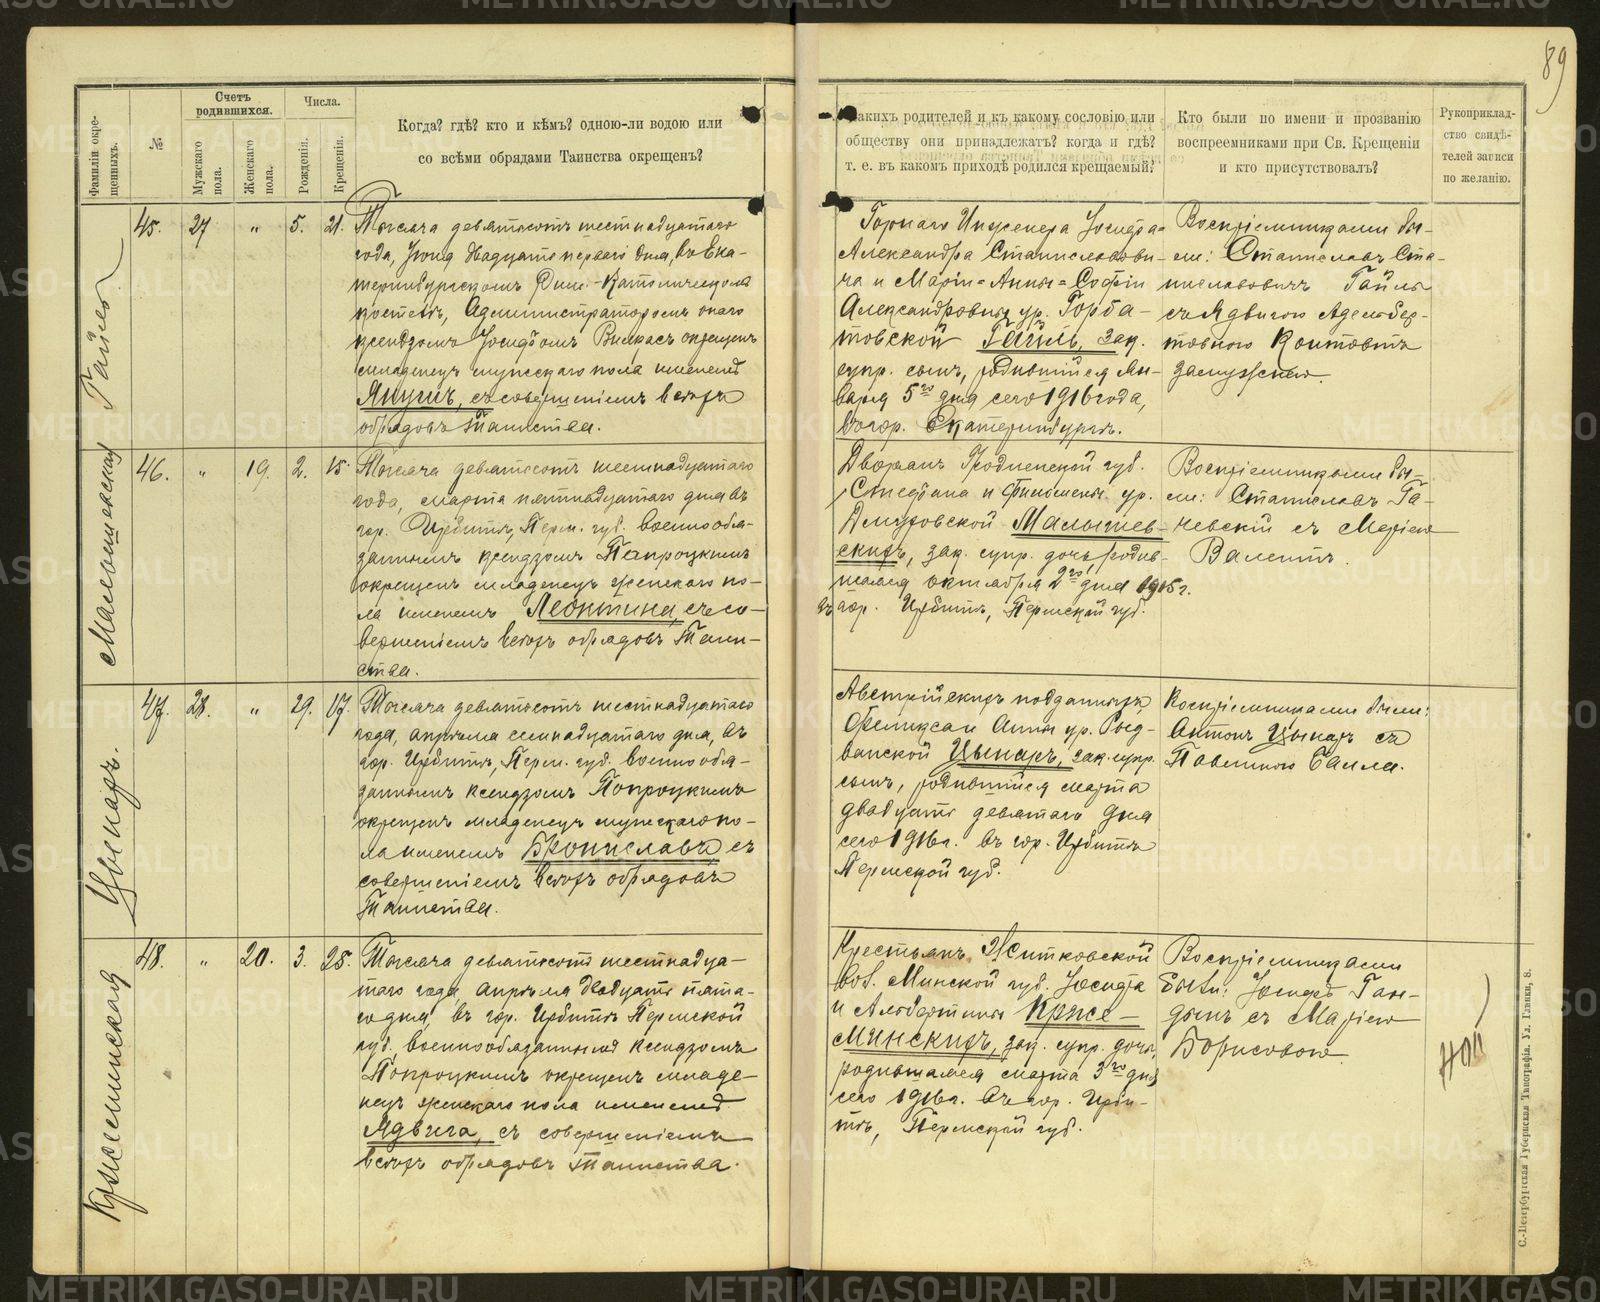 89
Фамиліи окре-
щенныхъ.
№
Счетъ
родившихся.
Мужскаго
пола.
Женскаго
пола.
Числа.
Рожденія.
Крещенія.
Когда? гдѣ? кто и кѣмъ? одною-ли водою или
со всѣми обрядами Таинства окрещенъ?
какихъ родителей и къ какому сословію или
обществу они принадлежатъ? когда и гдѣ?
т. е. въ какомъ приходѣ родился крещаемый?
Кто были по имени и прозванію
воспреемниками при Св. Крещеніи
и кто присутствовалъ?
Рукоприклад-
ство свидѣ-
телей записи
по желанію.
Гайль
45. 27 „ 5. 21.
Тысяча девятьсотъ шестнадцатаго
года, Іюня двадцать перваго дня, въ Ека-
теринбургскомъ Рим.-Католическомъ
костелѣ, Администраторомъ онаго
ксендзомъ Іосифомъ окрещенъ
младенецъ мужескаго пола именемъ
Янушъ, съ совершеніемъ всѣхъ
обрядовъ Таинства.
Горнаго Инженера Іосифа-
Александра Станиславови-
ча и Маріи-Анны-Софіи
Александровны ур. Горба-
товской Гайль, зак.
супр. сынъ, родившійся Ян-
варя 5го дня сего 1916 года,
въ гор. Екатеринбургѣ.
Воспріемниками бы-
ли: Станиславъ Ста-
ниславовичъ Гайль
съ Ядвигою Адельбер-
товною Контовтъ
замужнею.
Малышевская
46. „ 19. 2. 15.
Тысяча девятьсотъ шестнадцатаго
года, марта пятнадцатаго дня въ
гор. Ирбитѣ, Перм. губ. военнообя-
заннымъ ксендзомъ Попроцкимъ
окрещенъ младенецъ женскаго по-
ла именемъ Леонтина, съ со-
вершеніемъ всѣхъ обрядовъ Таин-
ства.
Дворянъ Гродненской губ.
Стефана и Филомены ур.
Малышев-
скихъ, зак. супр. дочь, родив-
шаяся октября 2го дня 1915 г.
въ гор. Ирбитѣ, Пермской губ.
Воспріемниками бы-
ли: Станиславъ Га-
невскій съ Маріею
Валентъ.
Цынаръ.
47. 28. „ 29. 17.
Тысяча девятьсотъ шестнадцатаго
года, апрѣля семнадцатаго дня, въ
гор. Ирбитѣ, Перм. губ. военнообя-
заннымъ ксендзомъ Попроцкимъ
окрещенъ младенецъ мужескаго по-
ла именемъ Брониславъ, съ
совершеніемъ всѣхъ обрядовъ
Таинства.
Австрійскихъ подданныхъ
Феликса и Анны ур.
Цынаръ, зак. супр.
сынъ, родившійся марта
двадцать девятаго дня
сего 1916 г. въ гор. Ирбитѣ
Пермской губ.
Воспріемниками были:
Антонъ Цынаръ съ
Павлиною
Кржсеминская
48. „ 20. 3. 25.
Тысяча девятьсотъ шестнадца-
таго года, апрѣля двадцать пята-
го дня, въ гор. Ирбитѣ Пермской
губ. военнообязаннымъ ксендзомъ
Попроцкимъ окрещенъ младе-
нецъ женскаго пола именемъ
Ядвига, съ совершеніемъ
всѣхъ обрядовъ Таинства.
Крестьянъ Житковской
вол. Минской губ. Іосифа
и Альбертины Кржсе-
минскихъ, зак. супр. дочь,
родившаяся марта 3го дня
сего 1916 г. въ гор. Ирби-
тѣ, Пермской губ.
Воспріемниками
были: Іосифъ Ган-
дынъ съ Маріею
Борисовою.
С.-Петербургская Губернская Типографія. Ул. Глинки, 8.
METRIKI.GASO-URAL.RU